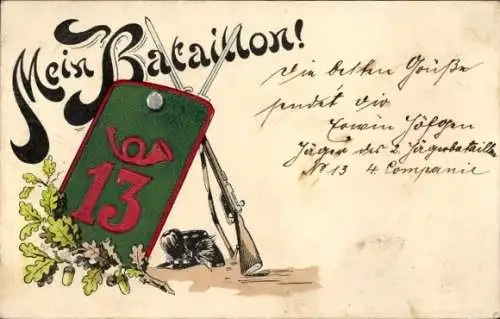 Mein Bataillon!
13
Die besten Grüße
sendet dir
Erwin Höfgen
Jäger des 2 Jägerbataillon
No 13 4 Companie